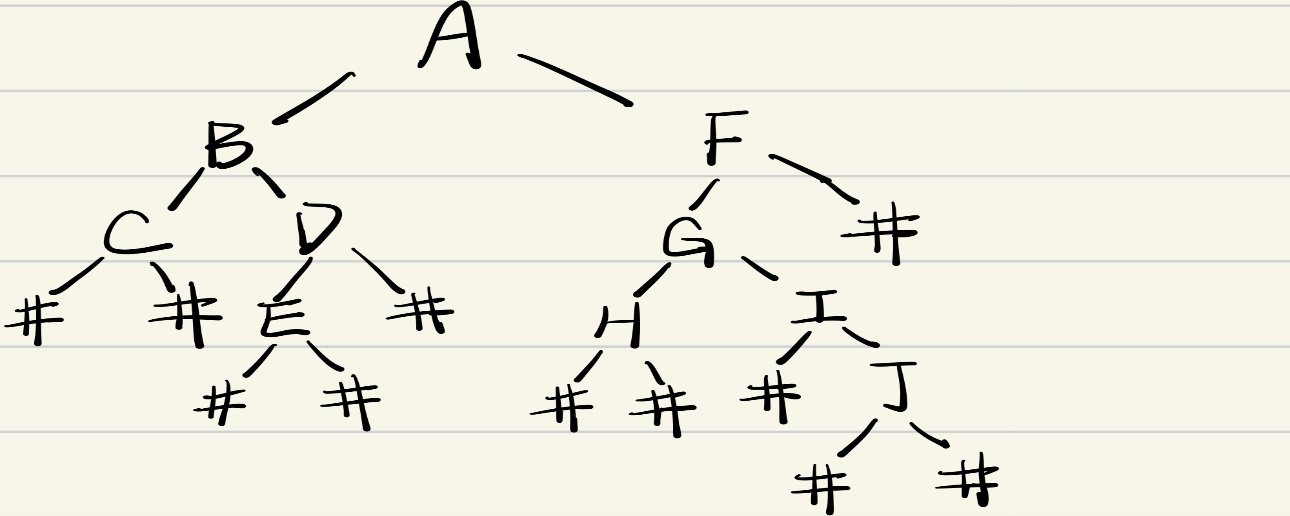 A
B F
C D G #
# # E # H I
# # # # # J
# #